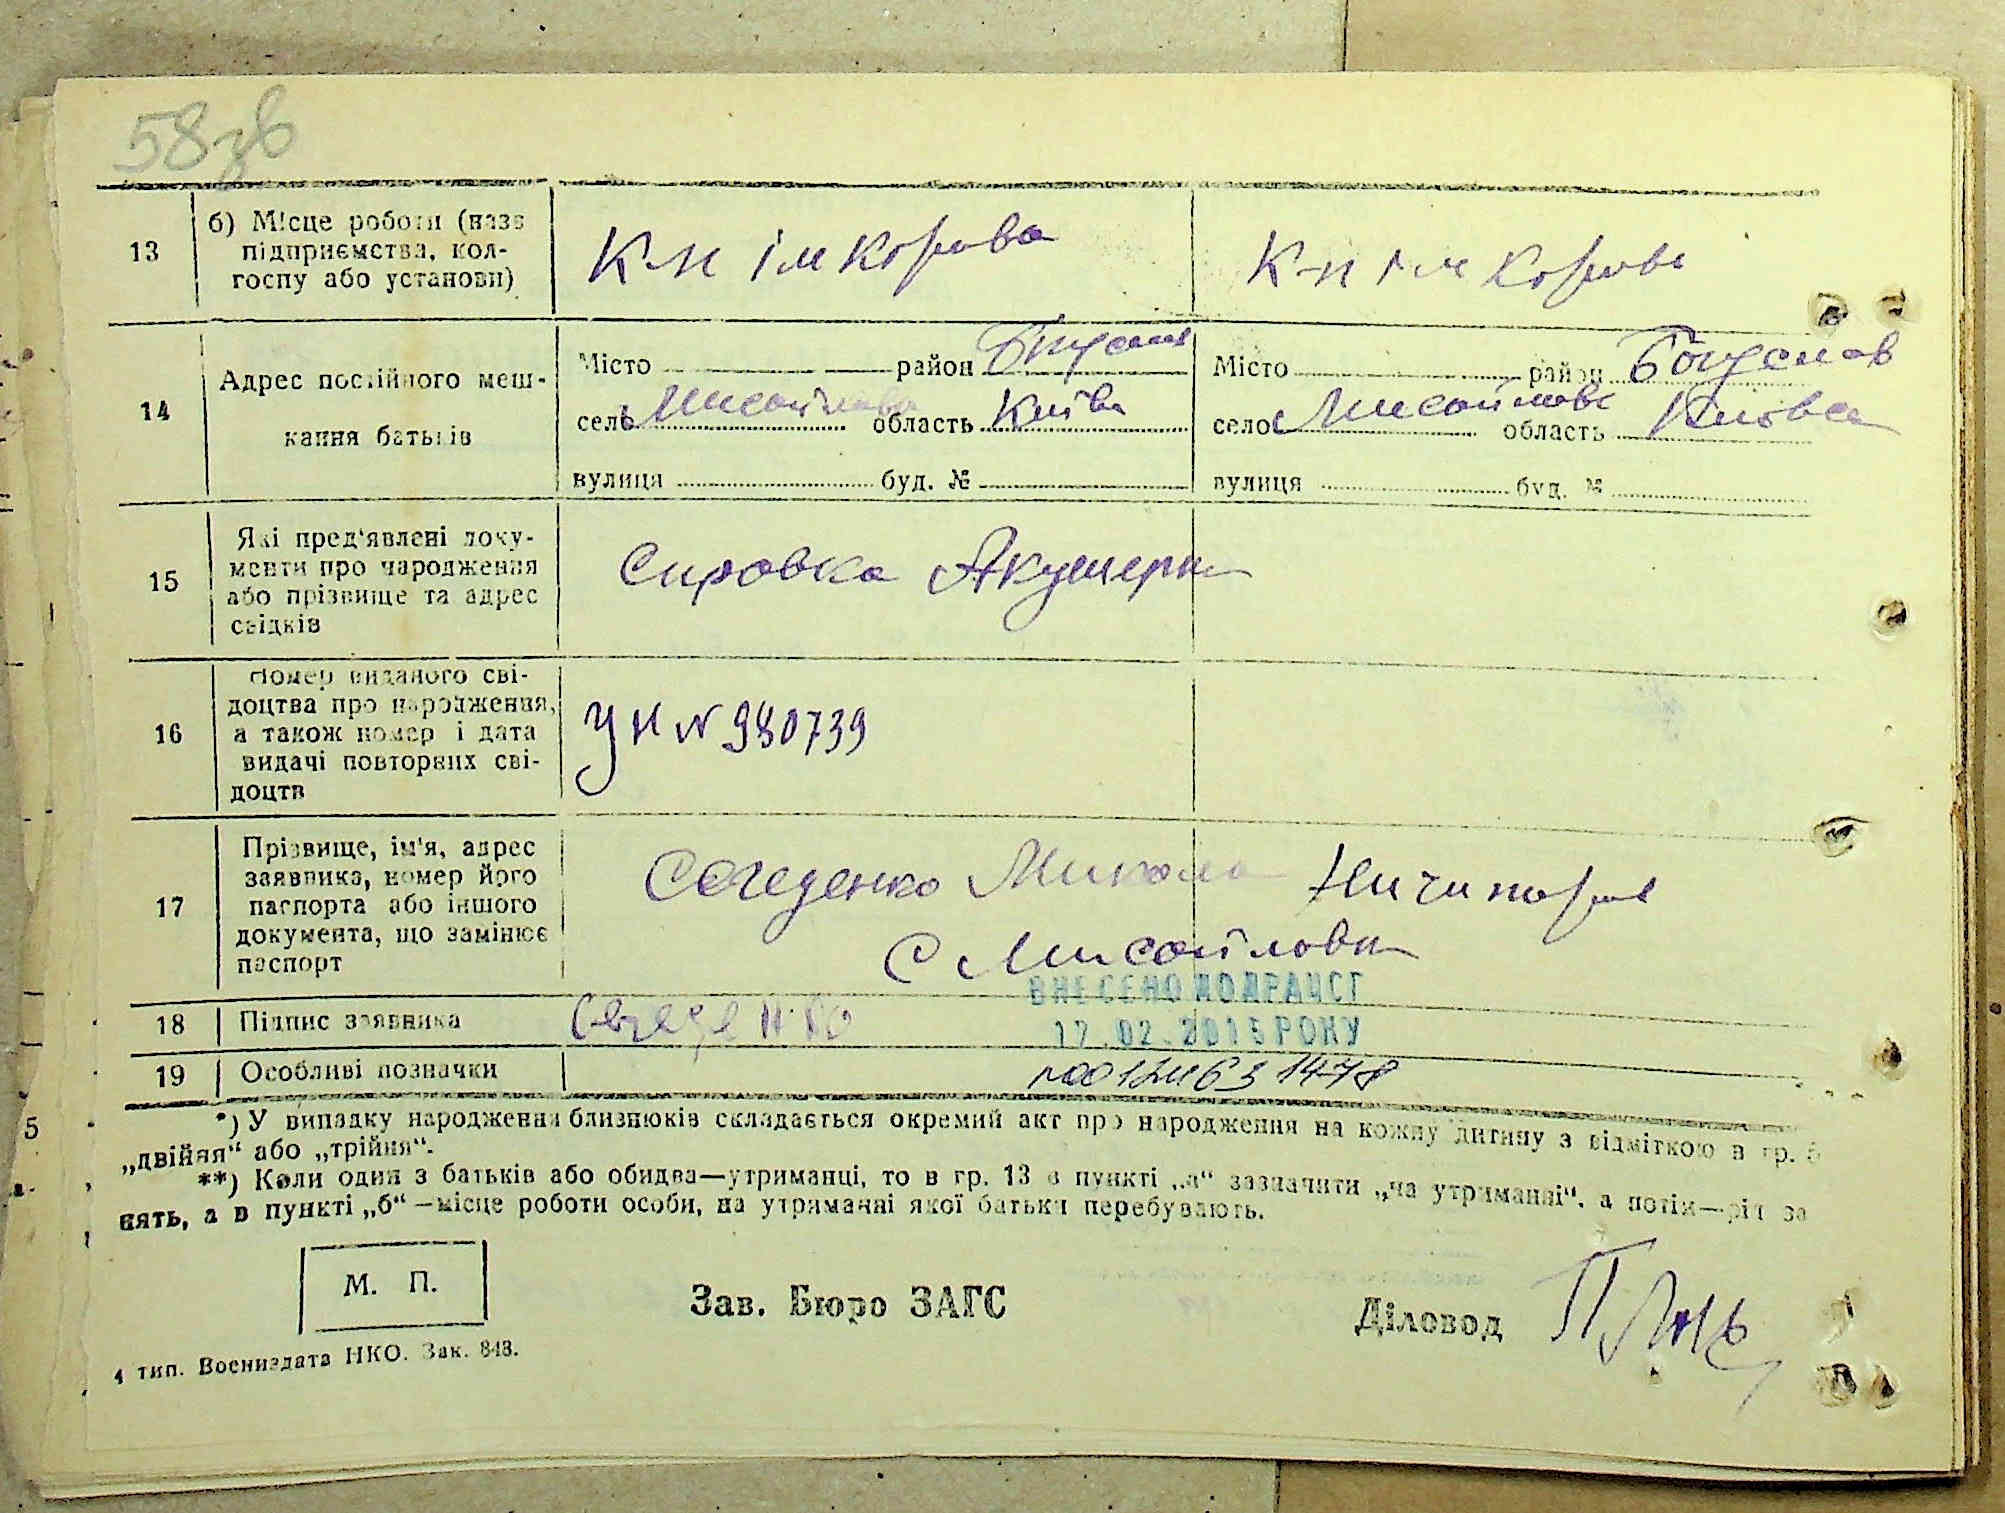 58зв
13
б) Місце роботи (назв
підприємства, кол-
госпу або установи)
К-п ім Кірова
К-п ім Кірова
14
Адрес постійного меш-
кання батьків
Місто район Богуслав
село Мисайлівка область Київ
вулиця буд. №
Місто район Богуслав
село Мисайлівка область Київ
вулиця буд. №
15
Які пред'явлені доку-
менти про народження
або прізвище та адрес
свідків
Справка Акушерки
16
Номер виданого сві-
доцтва про народження,
а також номер і дата
видачі повторних сві-
доцтв
УН № 980739
17
Прізвище, ім'я, адрес
заявника, номер його
паспорта або іншого
документа, що замінює
паспорт
Сегеденко Микола Ничипоров
С Мисайлівка
ВНЕСЕНО ДО ДРАЦСГ
17.02.2015 РОКУ
18 Підпис заявника
Сегеденко
19 Особливі позначки
*) У випадку народження близнюків складається окремий акт про народження на кожну дитину з відміткою в гр. 5
„двійня“ або „трійня“.
**) Коли один з батьків або обидва—утриманці, то в гр. 13 в пункті „а“ зазначити „на утриманні“, а потім—рід за
нять, а в пункті „б“—місце роботи особи, на утриманні якої батьки перебувають.
М. П.
Зав. Бюро ЗАГС
Діловод
4 тип. Воениздата НКО. Зак. 843.
5